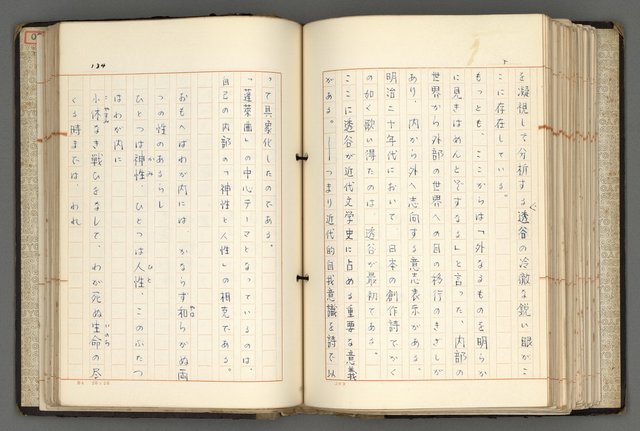 を凝視して分析する透谷の冷徹な鋭い眼がこ
こに存在している。
もっとも、ここからは「外なるものを明らか
に見きはめんとすなる」と言った、内部の
世界から外部の世界への目の移行のきざしが
あり、内から外へ志向する意志表示がある。
明治二十年代において、日本の創作詩でかく
の如く歌い得たのは、透谷が最初である。
ここに透谷が近代文学史に占める重要な意義
がある。――つまり近代的自我意識を詩で以
134
って具象化したのである。
「蓬莱曲」の中心テーマとなっているのは、
自己の内部の「神性と人性」の相克である。
おもへばわが内には、かならず和らがぬ両
つの性のあるらし、
ひとつは神性、ひとつは人性、このふたつ
はわが内に、
小休なき戦ひをなして、わが死ぬ生命の尽
くる時までは、われ